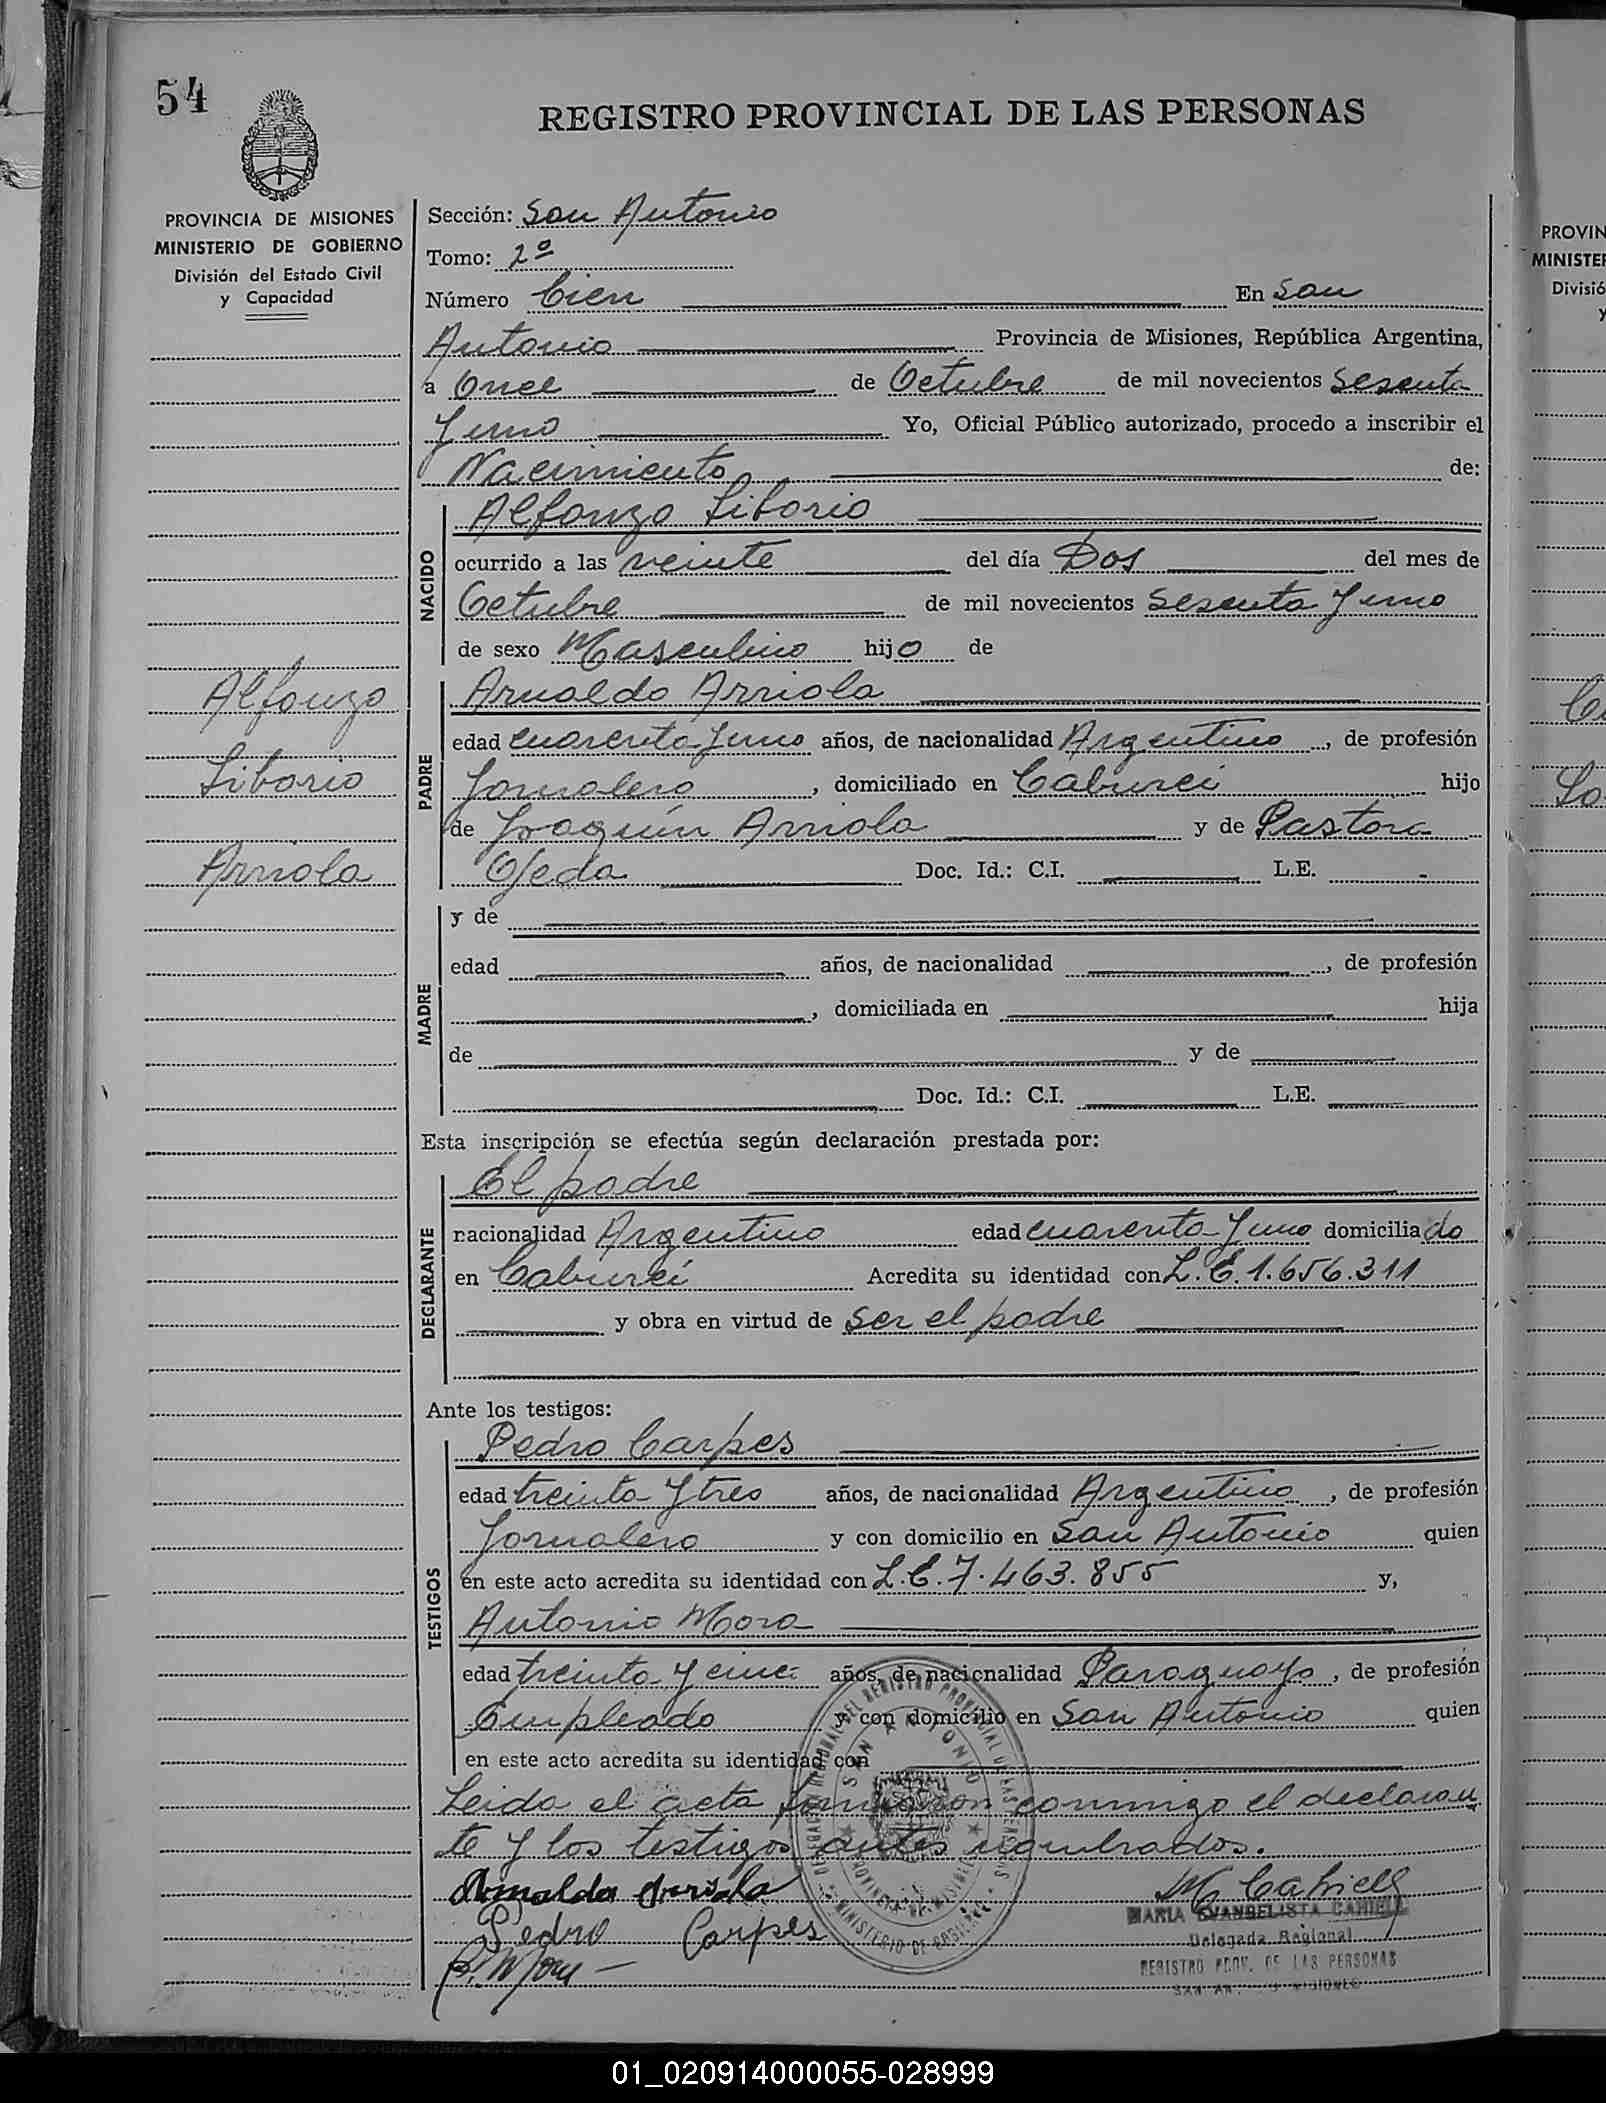 54
REGISTRO PROVINCIAL DE LAS PERSONAS
PROVINCIA DE MISIONES
MINISTERIO DE GOBIERNO
División del Estado Civil
y Capacidad
Sección: San Antonio
Tomo: 2º
Número Cien En San
Antonio Provincia de Misiones, República Argentina,
a Once de Octubre de mil novecientos Sesenta
Yuno Yo, Oficial Público autorizado, procedo a inscribir el
Nacimiento de:
NACIDO
Alfonzo Liborio
ocurrido a las veinte del día Dos del mes de
Octubre de mil novecientos Sesenta Yuno
de sexo Masculino hijo de
Alfonzo
Liborio
Arriola
PADRE
Arnaldo Arriola
edad cuarenta Yuno años, de nacionalidad Argentino, de profesión
Jornalero, domiciliado en Caburei hijo
de Joaquín Arriola y de Pastora
Ojeda Doc. Id.: C.I. L.E.
MADRE
y de
edad años, de nacionalidad , de profesión
, domiciliada en hija
de y de
Doc. Id.: C.I. L.E.
Esta inscripción se efectúa según declaración prestada por:
DECLARANTE
El padre
nacionalidad Argentino edad cuarenta Yuno domiciliado
en Caburei Acredita su identidad con L.E. 1.656.311
y obra en virtud de ser el padre
Ante los testigos:
TESTIGOS
Pedro Carpes
edad treinta Ytres años, de nacionalidad Argentino, de profesión
Jornalero y con domicilio en San Antonio quien
en este acto acredita su identidad con L.E. 7.463.855 y,
Antonio Mora
edad treinta y cinco años, de nacionalidad Paraguayo, de profesión
Empleado y con domicilio en San Antonio quien
en este acto acredita su identidad con
Leida el acta firmaron conmigo el declaran
te y los testigos antes nombrados.
Arnaldo Arriola
Pedro Carpes
A. Mora
M. E. Cabiell
MARIA EVANGELISTA
Delegada Regional
REGISTRO PROV. DE LAS PERSONAS
SAN MISIONES
DELEGACION REGIONAL DEL REGISTRO PROVINCIAL DE LAS PERSONAS
SAN ANTONIO
PROVINCIA DE MISIONES
MINISTERIO DE GOBIERNO
PROVIN
MINISTER
Divisió
y
01_020914000055-028999